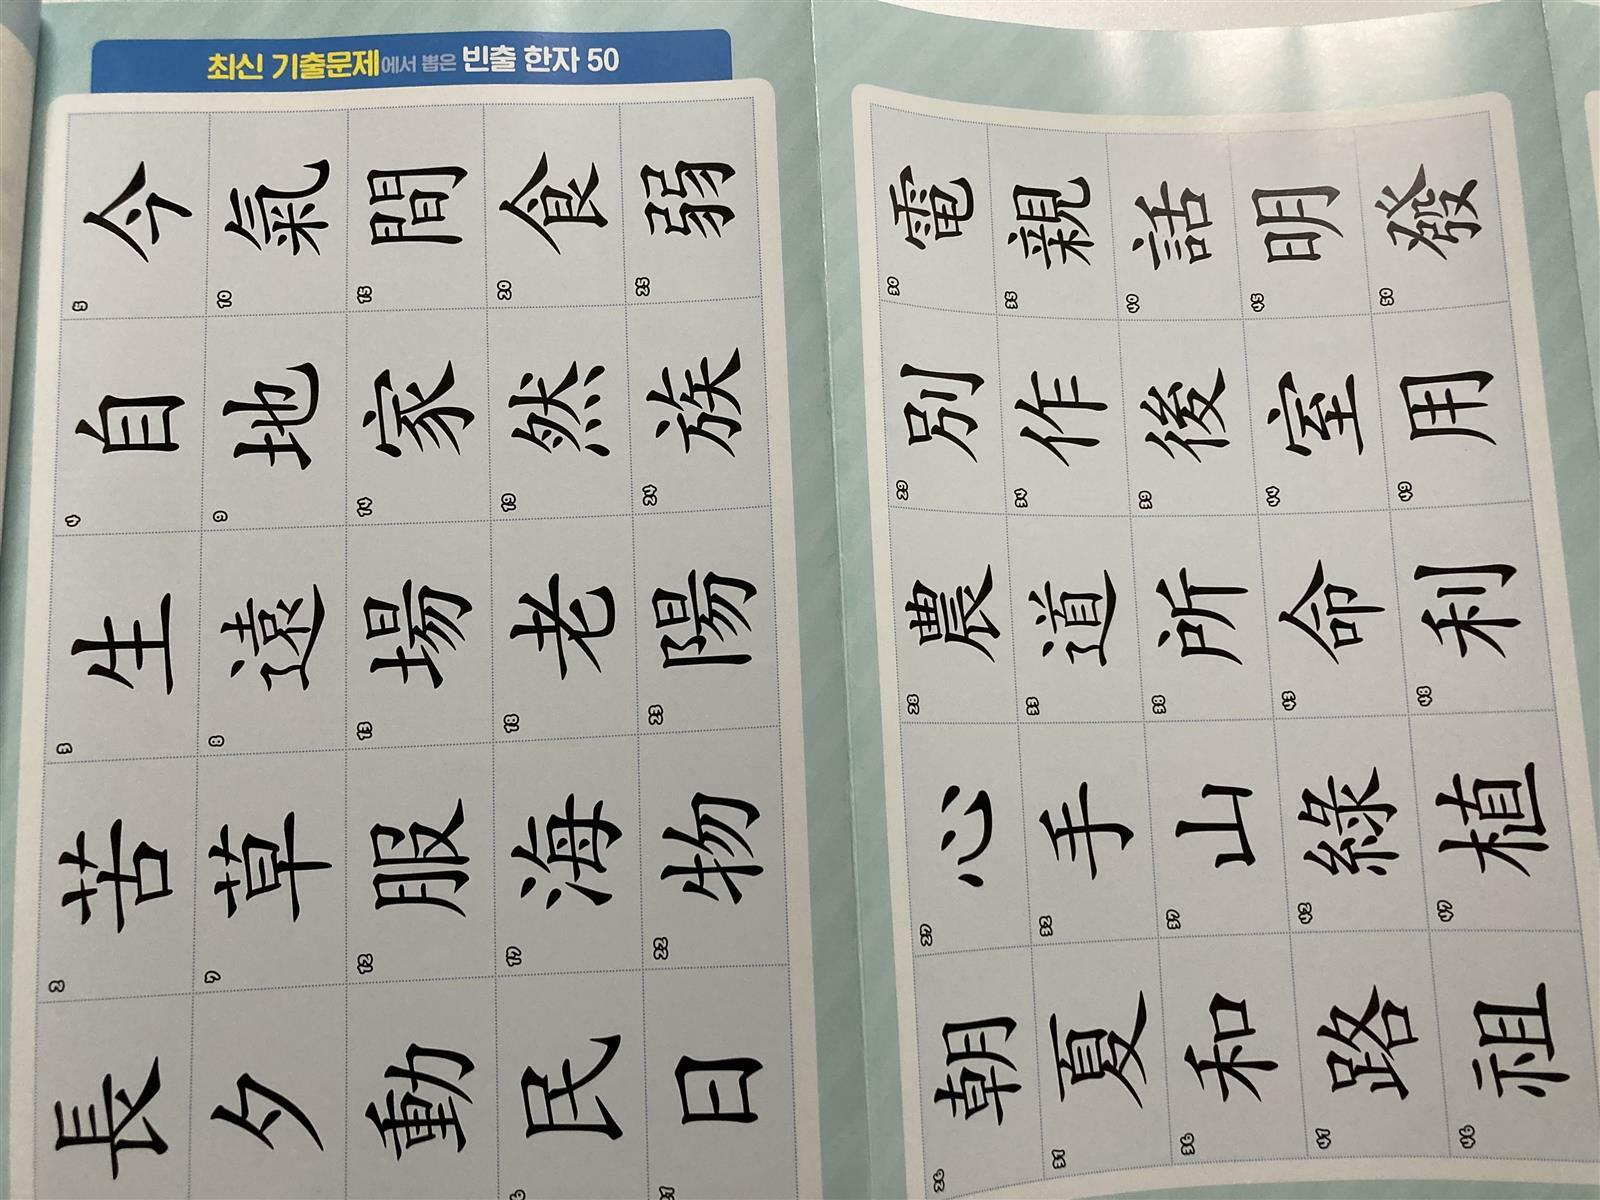 최신 기출문제에서 뽑은 빈출 한자 50
長 2 苦 3 生 4 自 5 今
夕 7 草 8 遠 9 地 10 氣
動 12 服 13 場 14 家 15 間
民 17 海 18 老 19 然 20 食
日 22 物 23 陽 24 族 25 弱
26 朝 27 心 28 農 29 別 30 電
31 夏 32 手 33 道 34 作 35 親
36 和 37 山 38 所 39 後 40 話
41 路 42 綠 43 命 44 室 45 明
46 祖 47 植 48 利 49 用 50 發